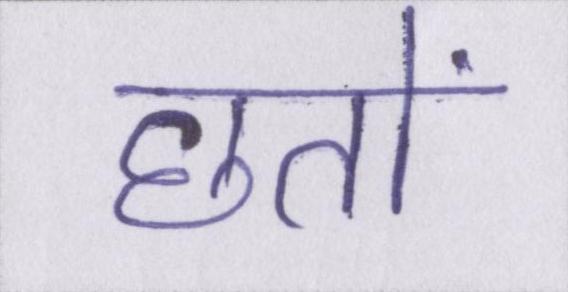 छतों